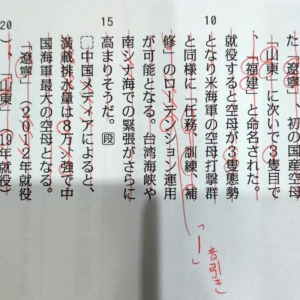 た「遼寧」、初の国産空母
「山東」に次いで3隻目で
、「福建」と命名された。
10
就役すると空母が3隻態勢
となり米海軍の空母打撃群
と同様に「任務、訓練、補
修」のローテーション運用
が可能となる。台湾海峡や
15
南シナ海での緊張がさらに
高まりそうだ。段
中国メディアによると、
満載排水量は8万トン強で中
国海軍最大の空母となる。
20
「遼寧」(2012年就役
)、「山東」(19年就役
「ー」
音引き